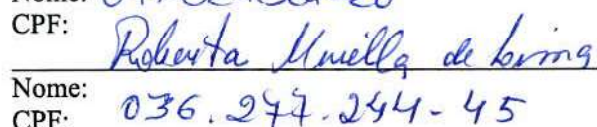 Nome:
CPF:
Roberta Mirella de Lima
Nome:
036.277.244-45
CPF: